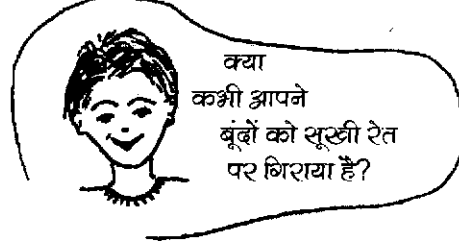 क्या
कभी आपने
बूंदों को सूखी रेत
पर गिराया है?